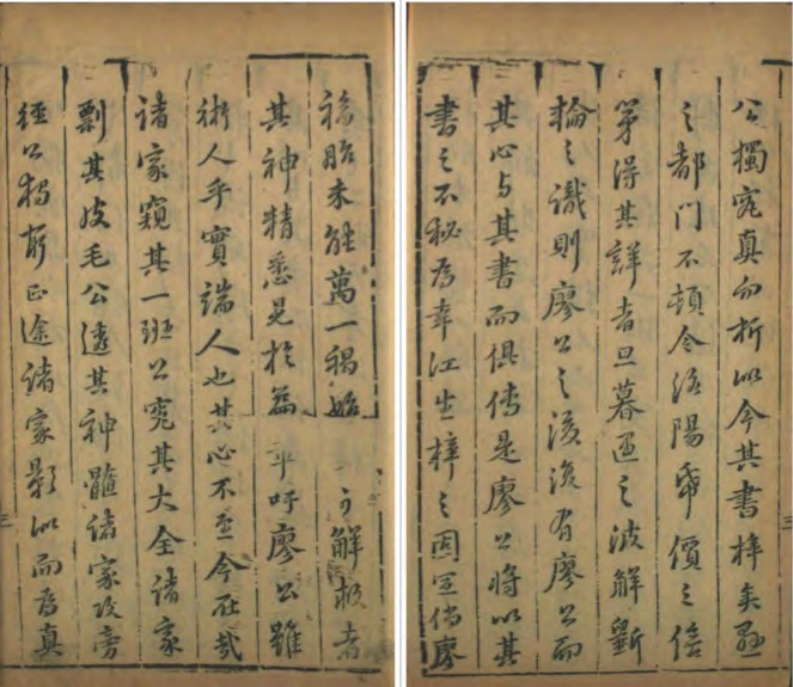 禍胎未能萬一禍始 可解救者
其神精悉見於篇 乎吁廖公雖
術人乎實端人也其心不至今在哉
諸家窺其一班公究其大全諸家
剽其皮毛公透其神髓諸家攻旁
徑公獨窮正途諸家影似而為真
公獨究真而析似今其書梓矣懸
之都門不頓令洛陽帋價之倍
第得其詳者旦暮遇之彼解斵
輪之識則廖公之後復有廖公而
其心与其書而俱傳是廖公將以其
書之不秘為幸江生梓之固宜倘廖